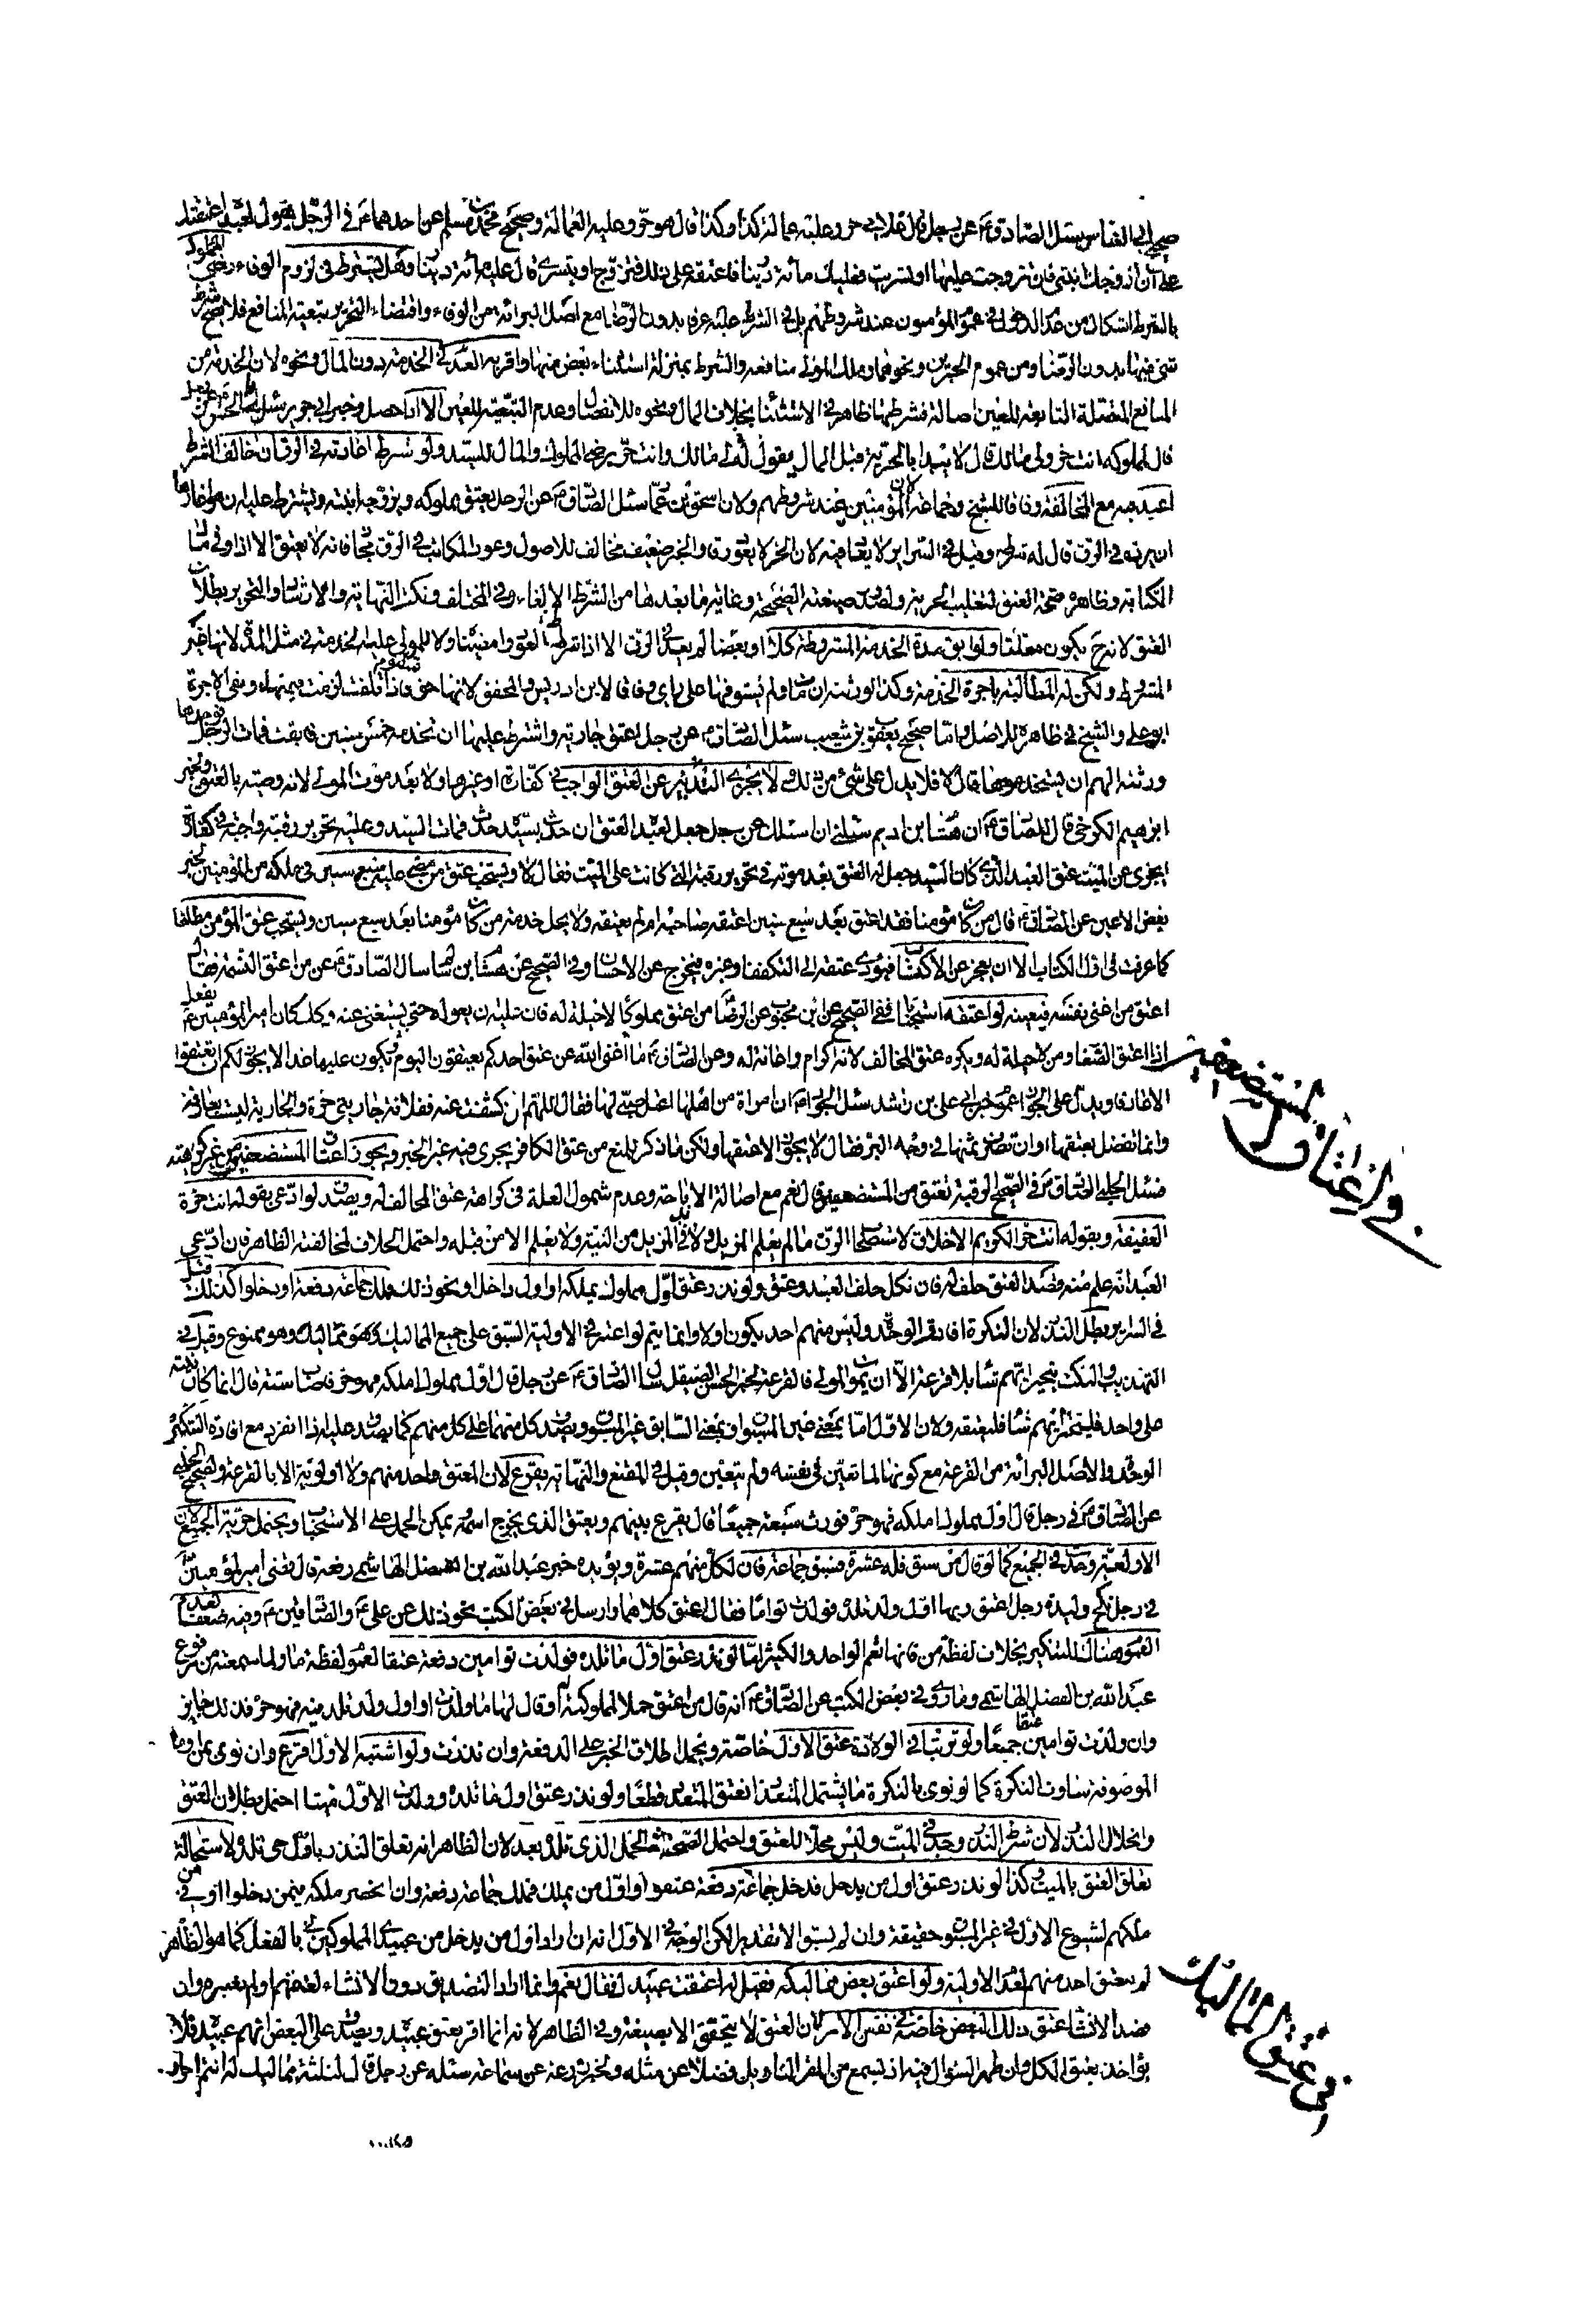 صحيح ابي العباس سئل الصادق ع عن رجل قال غلامي حر وعليه عمالة كذا وكذا قال هو حر وعليه العمالة وصحيح محمد بن مسلم عن احدهما ع في الرجل يقول لعبده اعتقتك
على ان ازوجك ابنتي فان تزوجت عليها او تسريت فعليك مائة دينار فاعتقه على ذلك فتزوج او تسرى قال عليه مائة دينار وهل يشترط في لزوم الوفاء رضى المملوك
بالشرط اشكال من عموم المؤمنون عند شروطهم الشرط عليه عرفا بدون الرضا مع اصل البرائة من الوفاء واقتضاء التحرير تبعية المنافع فلا يصح شرط
شيء منها بدون الرضا ومن عموم الخبرين ونحوهما وملك المولى منافعه والشرط بمنزلة استثناء بعض منها واقربه العدم في الخدمة دون المال ونحوه لان الخدمة من
المنافع المتصلة التابعة للعين اصالة فشرطها ظاهر في الاستثناء بخلاف المال ونحوه للانفصال وعدم التبعية للعين الا اذا حصل وخبر ابي جرير سئل ابا الحسن ع عن رجل
قال لمملوكه انت حر ولي مالك قال لا يبدأ بالحرية قبل المال يقول له لي مالك وانت حر برضى المملوك والمال للسيد ولو شرط اعادته في الرق ان خالف الشرط
اعيد مع المخالفة وفاقا للشيخ وجماعة لان المؤمنين عند شروطهم ولان اسحق بن عمار سئل الصادق ع عن الرجل يعتق مملوكه ويزوجه ابنته ويشترط عليه ان هو اغارها
ان يرده في الرق قال له شرطه وقيل في السرائر لا يعاد فيه لان الحر لا يعود رقا والخبر ضعيف مخالف للاصول وعود المكاتب في الرق مجاز فانه لا يعتق الا اذا وفى مال
الكتابة وظاهره صحة العتق لتغليب الحرية ولصدور صيغته الصحيحة وغاية ما بعدها من الشرط الالغاء وفي المختلف ونكت النهاية والارشاد والتحرير بطلان
العتق لانه ح يكون معلقا ولو ابق مدة الخدمة المشروطة كلا او بعضا لم يعد في الرق الا اذا شرط العود وامضيناه وللمولى عليه الخدمة في مثل المدة لانها غير
المشروط ولكن له المطالبة باجرة الخدمة وكذا لورثته ان مات ولم يستوفها على راي وفاقا لابن ادريس والمحقق لانها حق متقوم فاذا تلفت لزمت قيمتها ونفى الاجرة
ابو علي والشيخ في ظاهره للاصل واما صحيح يعقوب بن شعيب سئل الصادق ع عن رجل اعتق جاريته واشترط عليها ان تخدمه خمس سنين فابقت فمات الرجل فوجدها
ورثته الهم ان يستخدموها قال لا فلا يدل على شيء من ذلك ولا يجزي التدبير عن العتق الواجب في كفارة او غيرها ولا بعد موت المولى لانه وصية بالعتق ولخبر
ابراهيم الكرخي قال للصادق ع ان هشام بن اديم سئلني ان اسئلك عن رجل جعل لعبده العتق ان حدث بسيده حدث فمات السيد وعليه تحرير رقبة واجبة في كفارة
ايجزي عن الميت عتق العبد الذي كان السيد جعل له العتق بعد موته في تحرير رقبة التي كانت على الميت فقال لا ويستحب عتق من مضى عليه سبع سنين في ملكه من المؤمنين لخبر
بعض الاعين عن الصادق ع قال من كان مؤمنا فقد اعتق بعد سبع سنين اعتقه صاحبه ام لم يعتقه ولا يحل خدمة من كان مؤمنا بعد سبع سنين ويستحب عتق المؤمن مطلقا
كما عرفت في اول الكتاب الا ان يعجز عن الاكتساب فيؤدي عتقه الى التكفف وغيره فيخرج عن الاحسان وفي الصحيح عن هشام بن سالم سال الصادق ع عن من اعتق النسمة فقال
اعتق من اغنى نفسه فيعينه لو اعتقه استحبابا ففي الصحيح عن ابن محبوب عن الرضا ع من اعتق مملوكا لا حيلة له فان عليه ان يعوله حتى يستغني عنه وكذلك كان امير المؤمنين ع يفعل
اذا اعتق الصغار ومن لا حيلة له ويكره عتق المخالف لانه اكرام واعانة له وعن الصادق ع ما اغنى الله عن عتق احدكم تعتقون اليوم ويكون علينا غدا لا يجوز لكم ان تعتقوا
الا عارفا ويدل على الجواز العموم وخبر ابي علي بن راشد سئل الجواد ع ان امراة من اهلنا اعتل صبي لها فقالت اللهم ان كشفت عنه ففلانة جاريتي حرة والجارية ليست بعارفة
وانما تفضل بعتقها او ان تصرف ثمنها في وجه البر فقال لا يجوز الا عتقها ولكن ما ذكر للمنع من عتق الكافر يجري فيه غير الخبر ويجوز اعتاق المستضعفين من غير كراهة
فسئل الحلبي الصادق ع في الصحيح الرقبة تعتق من المستضعفين قال نعم مع اصالة الاباحة وعدم شمول العلة في كراهة عتق المخالف له ويصدق لو ادعى بقوله انت حرة
العفيفة وبقوله انت حر الكريم الاخلاق لاستصحاب الرق ما لم يعلم المزيل ولا في المزيل من النية ولا يعلم الا من قبله واحتمل الخلاف لمخالفة الظاهر فان ادعى
العبد انه علم منه قصد العتق حلف له فان نكل حلف العبد وعتق ولو نذر عتق اول مملوك يملكه او اول داخل او نحو ذلك فملك جماعة دفعة او دخلوا كذلك قيل
في السرائر بطل النذر لان النكرة افادت الوحدة وليس منهم احد يكون اولا وانما يتم لو اعتبر في الاولية السبق على جميع المماليك وهو ممنوع وقيل في
التهذيب والنكت يتخير ايهم شاء بلا قرعة الا ان يموت المولى فالقرعة لخبر الحسن الصيقل سال الصادق ع عن رجل قال اول مملوك املكه فهو حر فاصاب ستة قال انما كان نيته
على واحد فليتخير ايهم شاء فليعتقه ولان الاول اما بمعنى غير المسبوق او بمعنى السابق غير المسبوق ويصدق كل منهما على كل منهم كما يصدق عليه اذا انفرد مع افادة التنكير
الوحدة والاصل البرائة من القرعة مع كونها لما تعين في نفسه ولم يتعين وقيل في المقنع والنهاية يقرع لان المعتق واحد منهم ولا اولوية الا بالقرعة ولصحيح الحلبي
عن الصادق ع في رجل قال اول مملوك املكه فهو حر فورث سبعة جميعا قال يقرع بينهم ويعتق الذي يخرج اسمه يمكن الحمل على الاستحباب ويحتمل حرية الجميع لان
الاولية وجدت في الجميع كما لو قال من سبق فله عشرة فسبق جماعة فان لكل منهم عشرة ويؤيده خبر عبد الله بن الفضل الهاشمي رفعه قال قضى امير المؤمنين ع
في رجل نكح وليدة رجل اعتق ربها اول ولد تلده فولدت توأما فقال اعتق كلاهما وارسل في بعض الكتب نحو ذلك عن علي ع والصادقين ع وفيه ضعف لعدم
العموم هناك للتنكير بخلاف لفظة من فانها تعم الواحد والكثير اما لو نذر عتق اول ما تلده فولدت توامين دفعة عتقا لعموم لفظة ما ولما سمعته من مرفوع
عبد الله بن الفضل الهاشمي وما روي في بعض الكتب عن الصادق ع انه قال من اعتق حملا لمملوكته او قال لها ما ولدت او اول ولد تلدينه فهو حر فذلك جايز
وان ولدت توامين عتقا جميعا ولو ترتبا في الولادة عتق الاول خاصة ويحمل اطلاق الخبر على الدفعة وان ندرت ولو اشتبه الاول اقرع وان نوى بمن او ما
الموصوفة ساوت النكرة كما لو نوى بالنكرة ما يشتمل المتعدد انعتق المتعدد قطعا ولو نذر عتق اول ما تلده وولدت الاول ميتا احتمل بطلان العتق
وانحلال النذر لان شرط النذر وجد في الميت وليس محلا للعتق واحتمل الصحة في الحمل الذي تلده بعد لان الظاهر انه تعلق النذر باول حي تلده لاستحالة
تعلق العتق بالميت وكذا لو نذر عتق اول من يدخل فدخل جماعة دفعة عتقوا واول من يملك فملك جماعة دفعة وان انحصر ملكه فيمن دخلوا او في من
ملكهم لشيوع الاول في غير المسبوق حقيقة وان لم يسبق الا تقديرا لكن الوجه في الاول انه ان اراد اول من يدخل من عبيدي المملوكين لي بالفعل كما هو الظاهر
لم يعتق احد منهم لفقد الاولية ولو اعتق بعض مماليكه فقيل له اعتقت عبيدك فقال نعم وانما اراد التصديق دون الانشاء لبعضهم او لم يغيره وان
قصد الانشاء عتق ذلك البعض خاصة في نفس الامر لان العتق لا يتحقق الا بصيغة وفي الظاهر لانه انما اقر بعتق عبيده ويصدق على البعض انهم عبيده فلا
يؤاخذ بعتق الكل وان ظهر السؤال فيه اذ يسمع من المقر التاويل فضلا عن مثله ولخبر زرعة عن سماعة سئله عن رجل قال لثلثة مماليك له انتم احرار
في اعتاق المستضعفين
في عتق المماليك